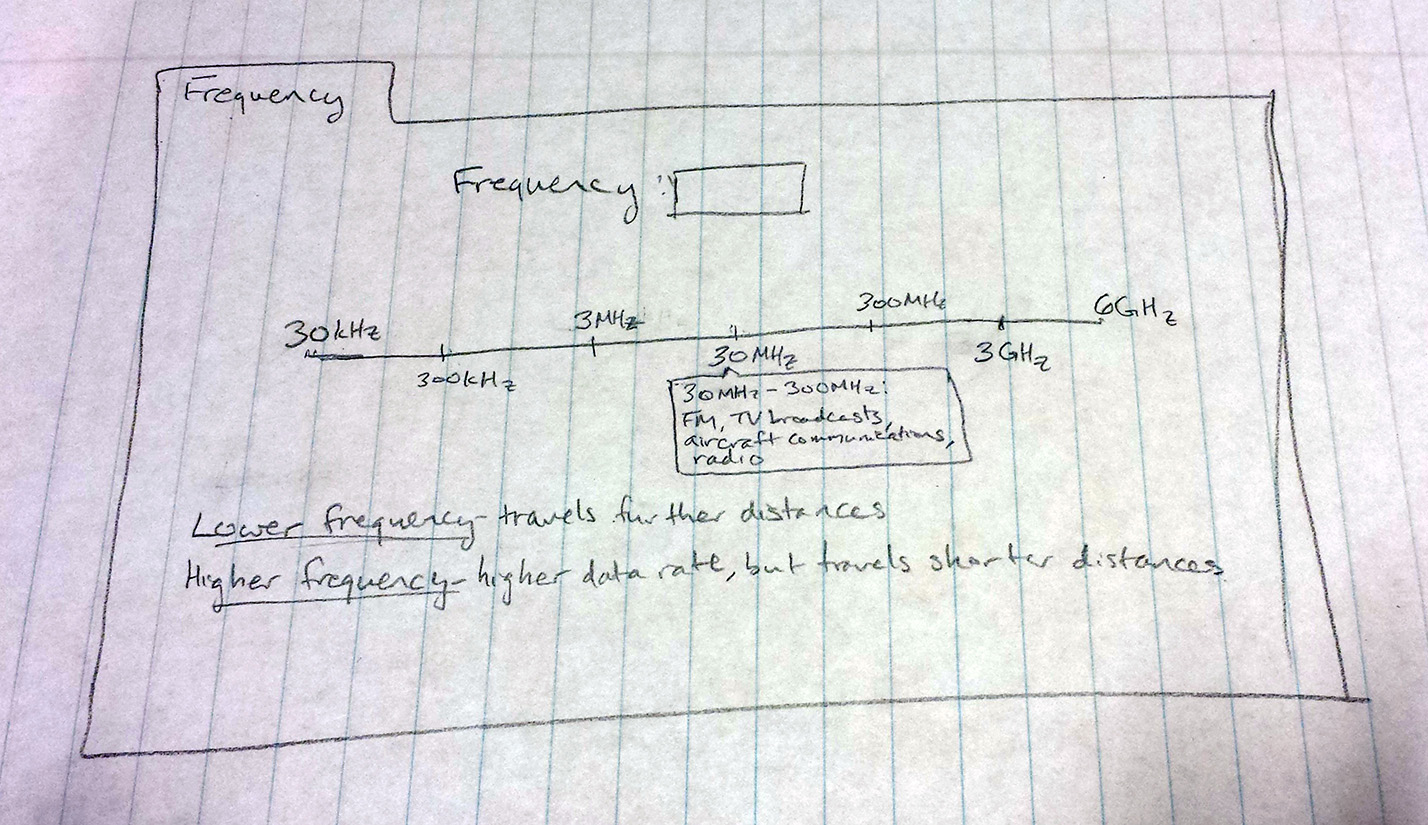 Frequency
Frequency:
30kHz
300kHz
3MHz
30MHz
300MHz
3GHz
6GHz
30MHz - 300MHz:
FM, TV broadcasts,
aircraft communications,
radio
Lower frequency - travels further distances
Higher frequency - higher data rate, but travels shorter distances